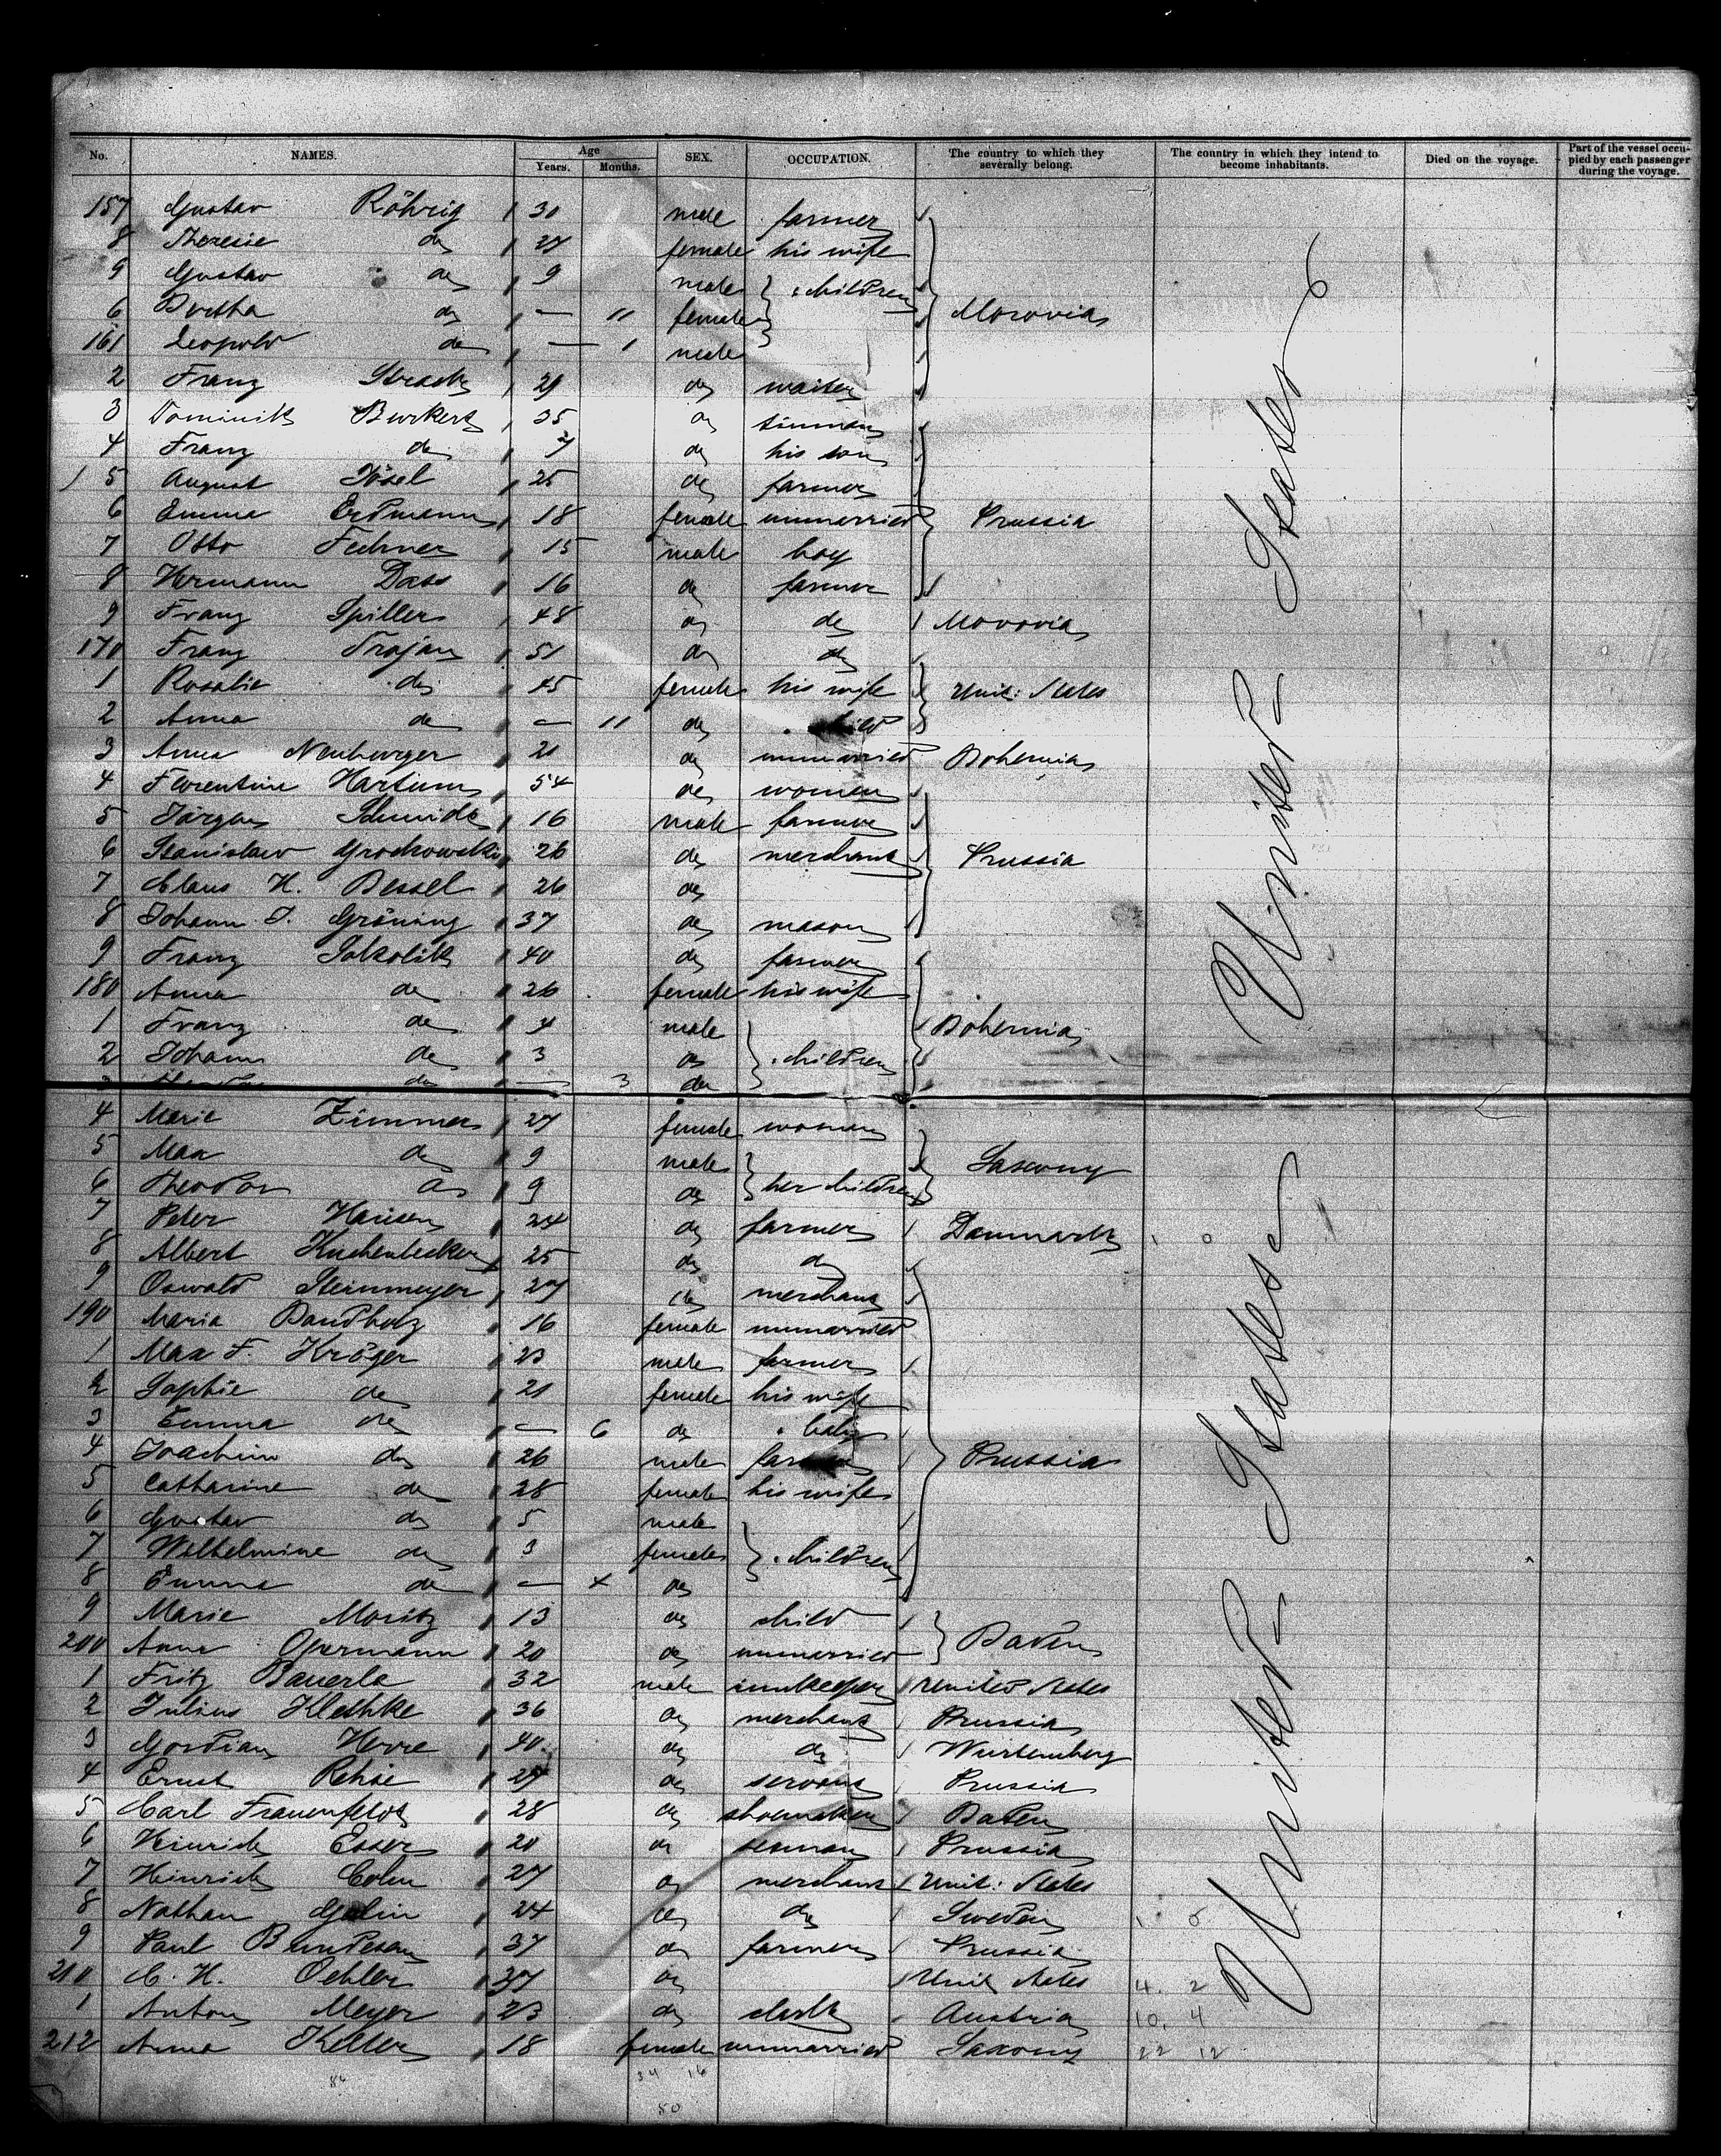 No. NAMES. Age Years. Months. SEX. OCCUPATION. The country to which they severally belong. The country in which they intend to become inhabitants. Died on the voyage. Part of the vessel occupied by each passenger during the voyage.
157 Gustav Röhrig 30 male farmer
8 Theresie do 27 female his wife
9 Gustav do 9 male " children
6 Bertha do — 11 female Moravia
161 Leopold do — 1 male
2 Franz 29 do waiter
3 Dominik Burkert 35 do
4 Franz do 7 do his son
5 August Jösel 25 do farmer
6 Emma Erdmann 18 female unmarried Prussia
7 Otto Fechner 15 male boy
8 Hermann Dass 16 do farmer
9 Franz Spiller 48 do do Moravia
170 Franz Trojan 51 do do
1 Rosalie do 45 female his wife Unit: States
2 Anna do — 11 do " child
3 Anna Neuburger 21 do unmarried Bohemia
4 Florentine Hartum 54 do woman
5 Jürgen Schmidt 16 male farmer
6 Stanislaw Grochowski 26 do merchant Prussia
7 Claus H. Bessel 26 do
8 Johann J. Gröning 37 do mason
9 Franz Sokolik 40 do farmer
180 Anna do 26 female his wife
1 Franz do 4 male Bohemia
2 Johann do 3 do " children
do — 3 do
4 Marie Zimmer 27 female woman
5 Max do 9 male Saxony
6 Theodor do 9 do her children
7 Peter Hansen 24 do farmer Danmark
8 Albert Kuchenbecker 25 do do
9 Oswald Steinmeyer 27 do merchant
190 Maria Bandholz 16 female unmarried
1 Max F. Kröger 23 male farmer
2 Sophie do 21 female his wife
3 Emma do — 6 do " baby
4 Joachim do 26 male farmer Prussia
5 Catharine do 28 female his wife
6 Gustav do 5 male
7 Wilhelmine do 3 female " children
8 Emma do — do
9 Marie Moritz 13 do child
200 Anna Opermann 20 do unmarried Baden
1 Fritz Bauerle 32 male innkeeper United States
2 Julius Klethke 36 do merchant Prussia
3 Gordian Herre 40 do do Wurtemberg
4 Ernst do servant Prussia
5 Carl Frauenfeldt 28 do shoemaker Baden
6 Heinrich Esser 20 do seaman Prussia
7 Heinrich Cohn 27 do merchant Unit: States
8 Nathan 24 do do Sweden
9 Paul Bundesen 37 do farmer Prussia
210 C. H. Oehler 37 do Unit States 4. 2
1 Anton Meyer 23 do clerk Austria 10. 4
212 Anna Keller 18 female unmarried Saxony 22 12
34 16
50
United States
United States